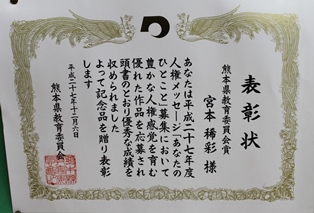 表彰状
熊本県教育委員会賞
宮本稀彩 様
あなたは平成二十七年度
人権メッセージ「あなたの
ひとこと」募集において
豊かな人権感覚を育む
優れた作品を応募され
頭書のとおり優秀な成績を
収められました
よって記念品を贈り表彰
します
平成二十七年十二月六日
熊本県教育委員会